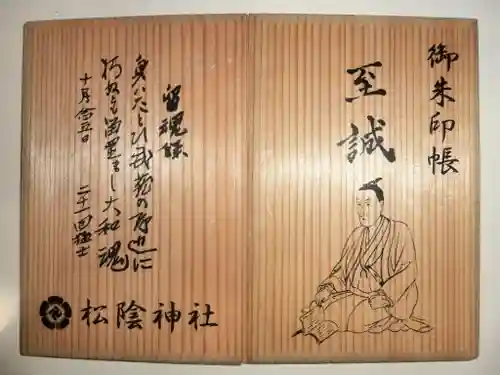 御朱印帳
至誠
留魂録
身はたとひ武蔵の野辺に
朽ぬとも留置まし大和魂
十月念五日 二十一回猛士
松陰神社